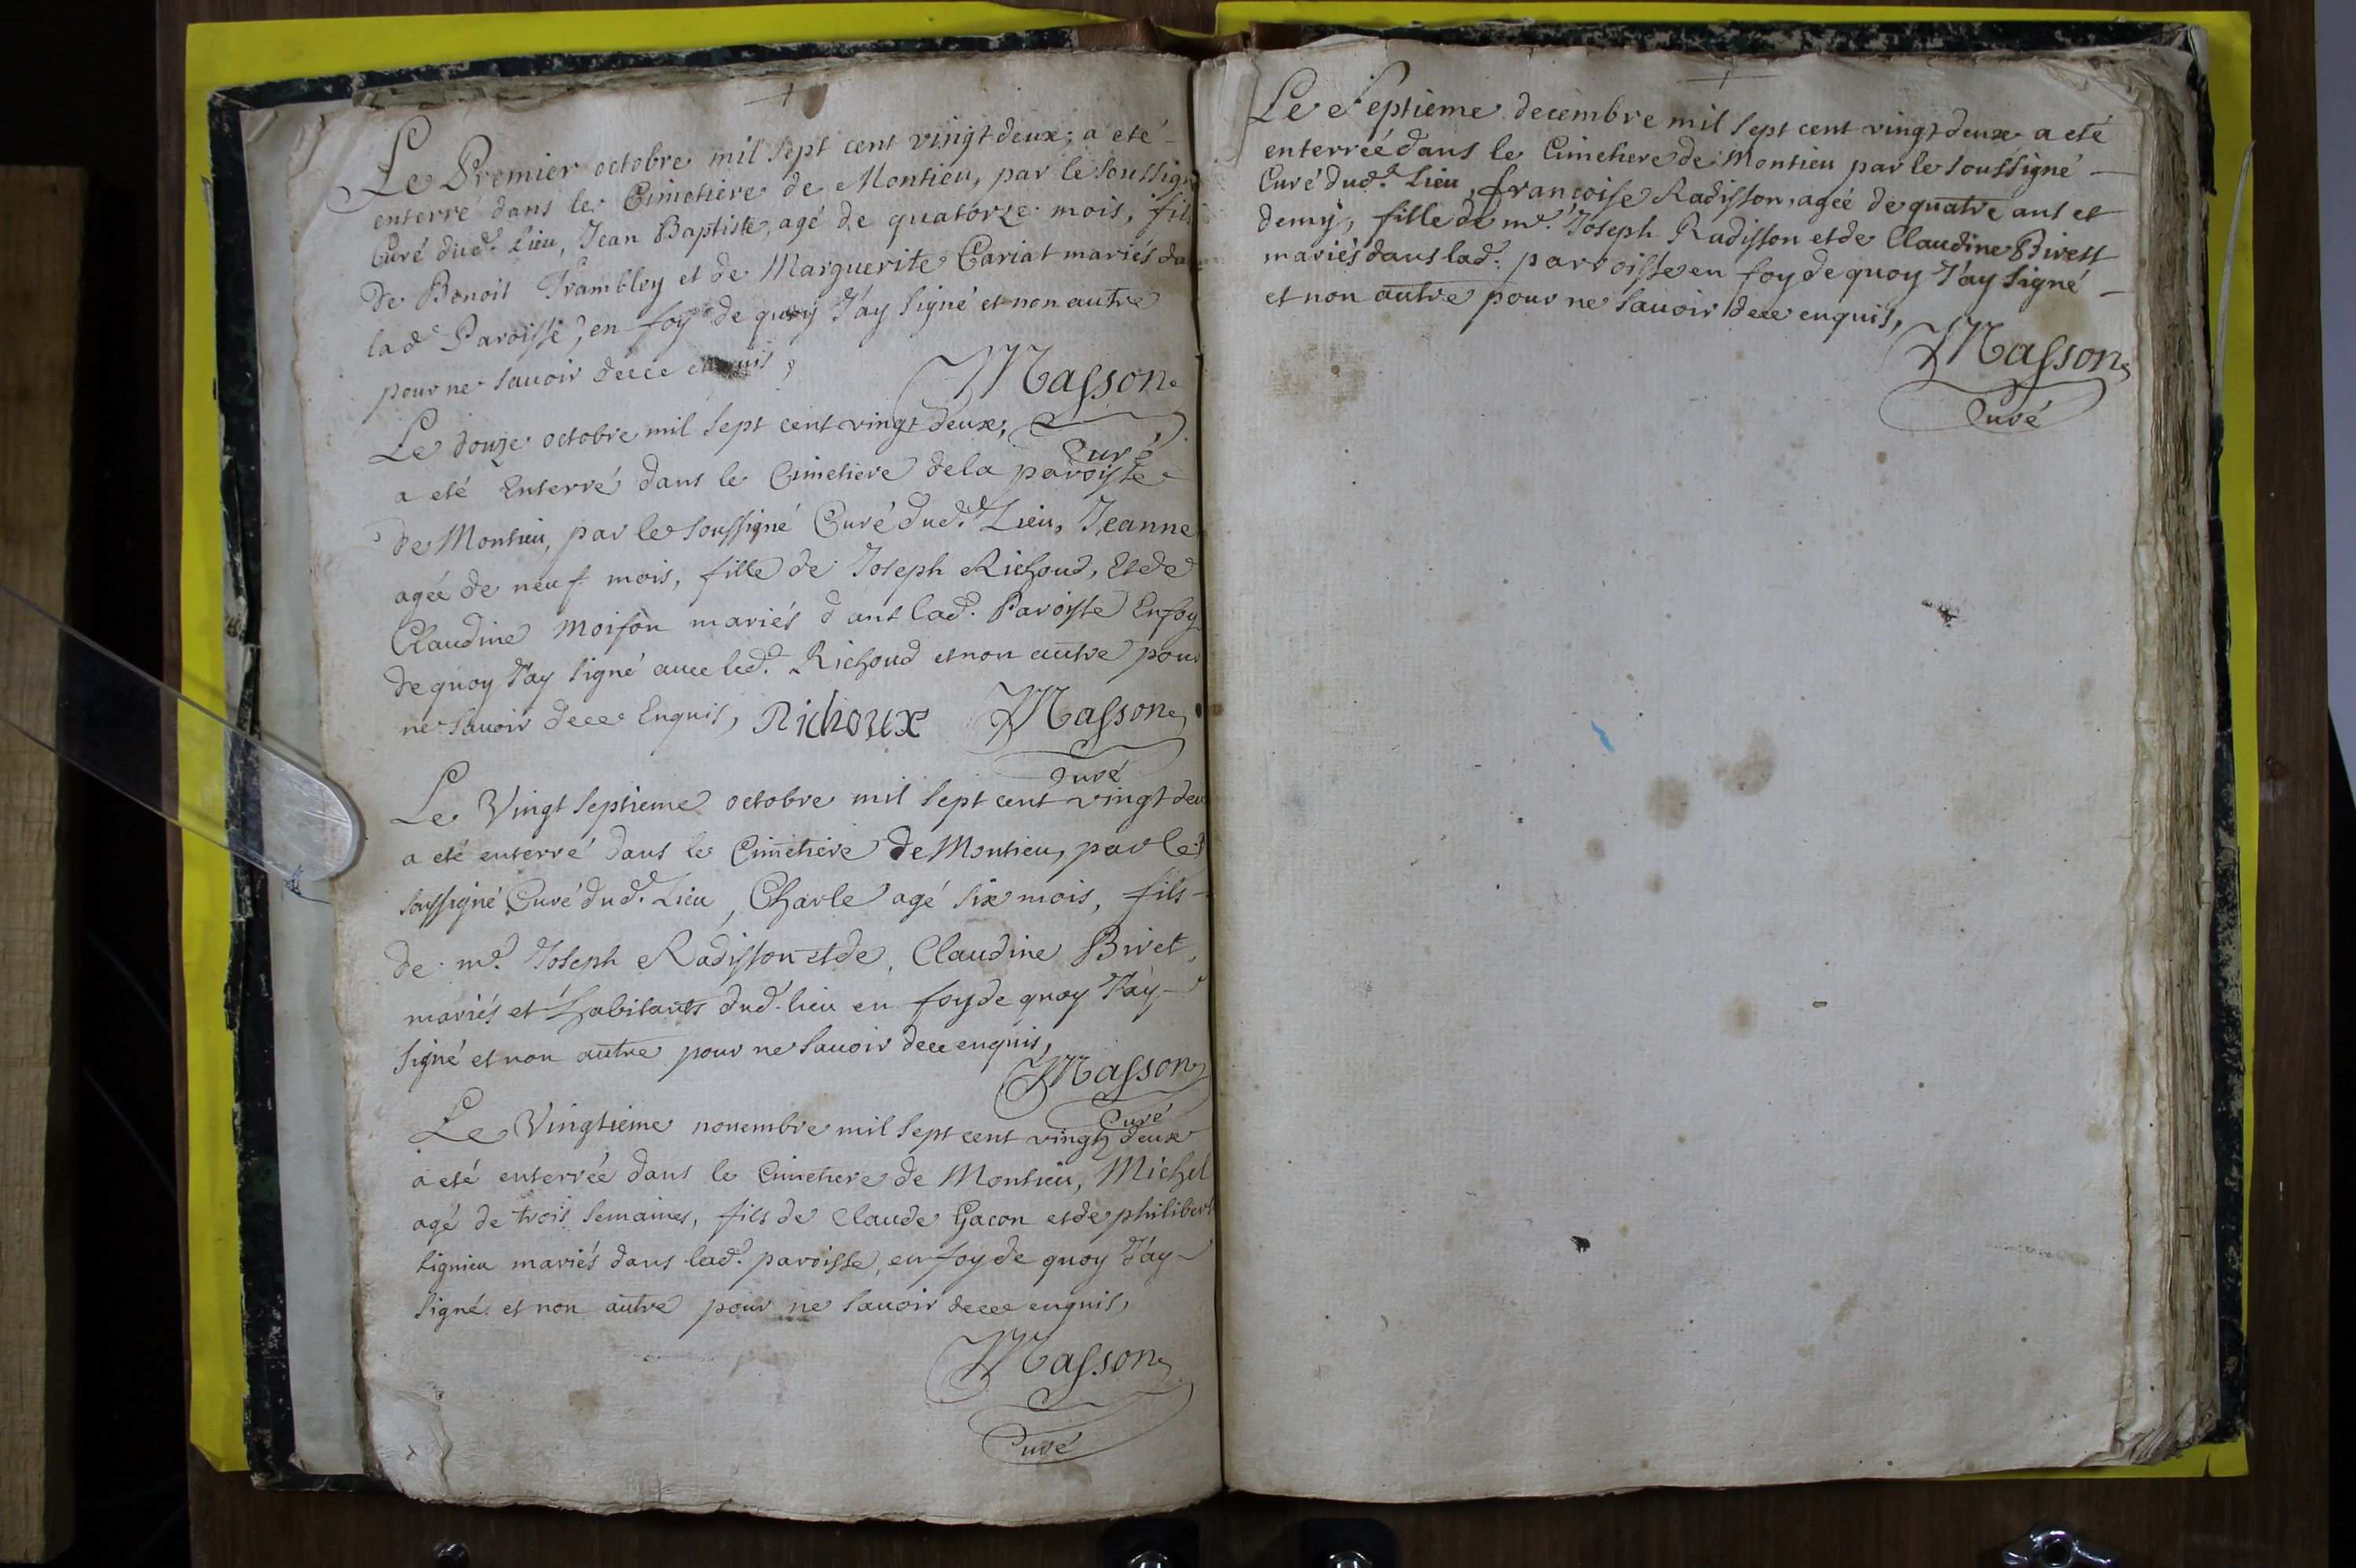 Le Premier octobre mil sept cent vingt deux; a eté
enterré dans le Cimetiere de Montieu, par le soussigné
Curé dud.t Lieu, Jean Baptiste, agé de quatorze mois, fils
de Benoit Trambley et de Marguerite Cariat mariés da
lad.e Paroisse, en foy de quoy J'ay signé et non autre
pour ne savoir de ce enquis,
Masson
Curé
Le douze octobre mil sept cent vingt deux,
a eté Enterré dans le Cimetiere de la paroisse
de Montieu, par le soussigné Curé dud.t Lieu, Jeanne
agée de neuf mois, fille de Joseph Richoud, Et de
Claudine Moison mariés dans lad. Paroisse En foy
de quoy J'ay signé avec led.t Richoud et non autre pour
ne savoir de ce Enquis, Richoux Masson
Curé
Le Vingt septieme octobre mil sept cent vingt deux
a eté enterré dans le Cimetiere de Montieu, par le
soussigné Curé dud.t Lieu, Charle agé six mois, fils
de m.e Joseph Radisson et de Claudine Biret,
mariés et habitants dud. lieu en foy de quoy J'ay
signé et non autre pour ne savoir de ce enquis,
Masson
Curé
Le Vingtieme novembre mil sept cent vingt deux
a eté enterrée dans le Cimetiere de Montieu, Michel
agé de trois semaines, fils de Claude Gacon et de philibert
Lignieu mariés dans lad. paroisse, en foy de quoy J'ay
signé et non autre pour ne savoir de ce enquis,
Masson
Curé
Le Septieme decembre mil sept cent vingt deux a eté
enterréé dans le Cimetiere de Montieu par le soussigné
Curé dud.t Lieu, francoise Radisson, agée de quatre ans et
demy, fille de m.e Joseph Radisson et de Claudine Birett
mariés dans lad. parroisse en foy de quoy J'ay signé
et non autre pour ne savoir de ce enquis,
Masson
Curé